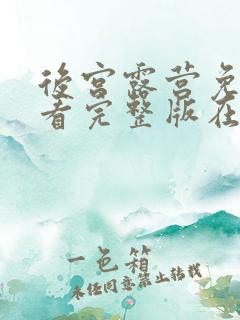 後宮露营免
看完整版在
一色箱
未经同意禁止转载